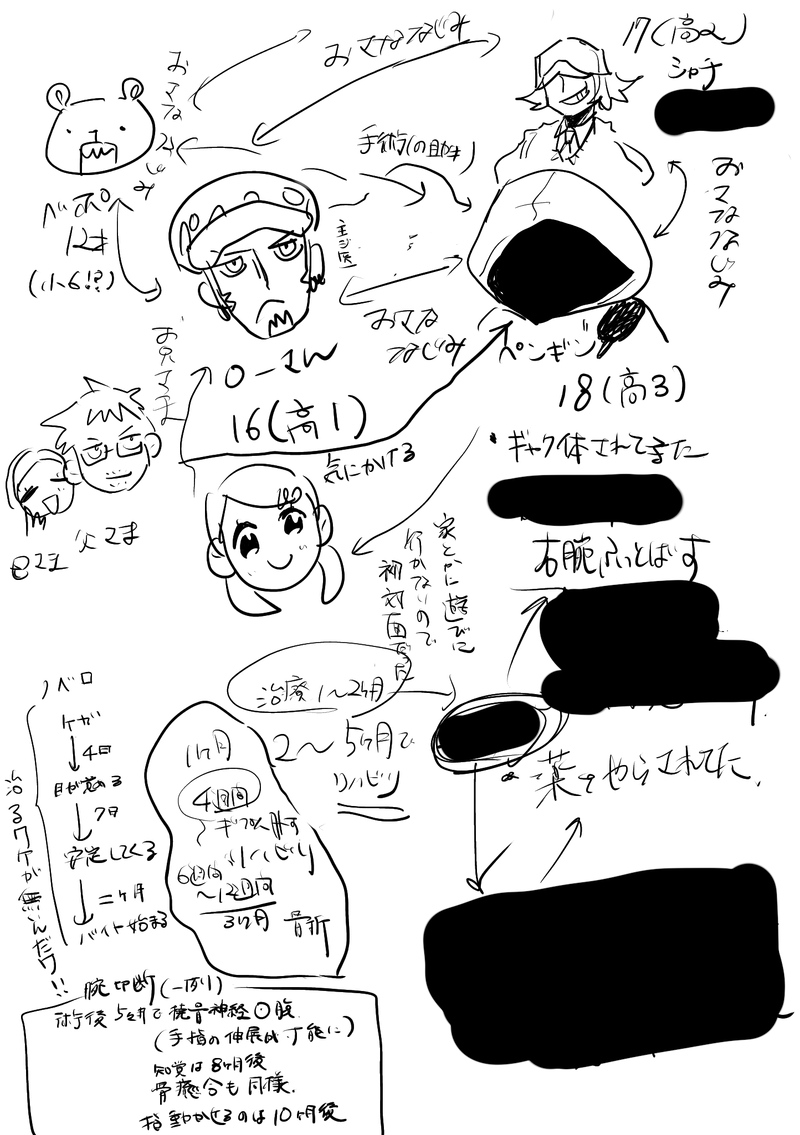 おさななじみ
17(高2)
シャチ
おさな
じみ
手術(の助手)
ベポ
12才
(小6!?)
主ジ医
おさななじみ
おさな
なじみ
ペンギン
お兄さま
ローさん
16(高1)
18(高3)
気にかけてる
・ギャク体されてきた
父さま
右腕ふっとばす
家とかに遊びに
行かないので
初対面だった
治療1〜2ヶ月
2〜5ヶ月で
リハビリ
薬もやらされてた
ノベロ
ケガ
4日
目が覚める
7日
安定してくる
二ヶ月
バイト始まる
治るワケが無いんだワ!!
1ヶ月
4週間
ギプス外す
リハビリ
6週間
〜12週間
3ヶ月
骨折
腕切断(一例)
術後5ヶ月で橈骨神経○腹
(手指の伸展が可能に)
知覚は8ヶ月後
骨癒合も同様.
指動かせるのは10ヶ月後